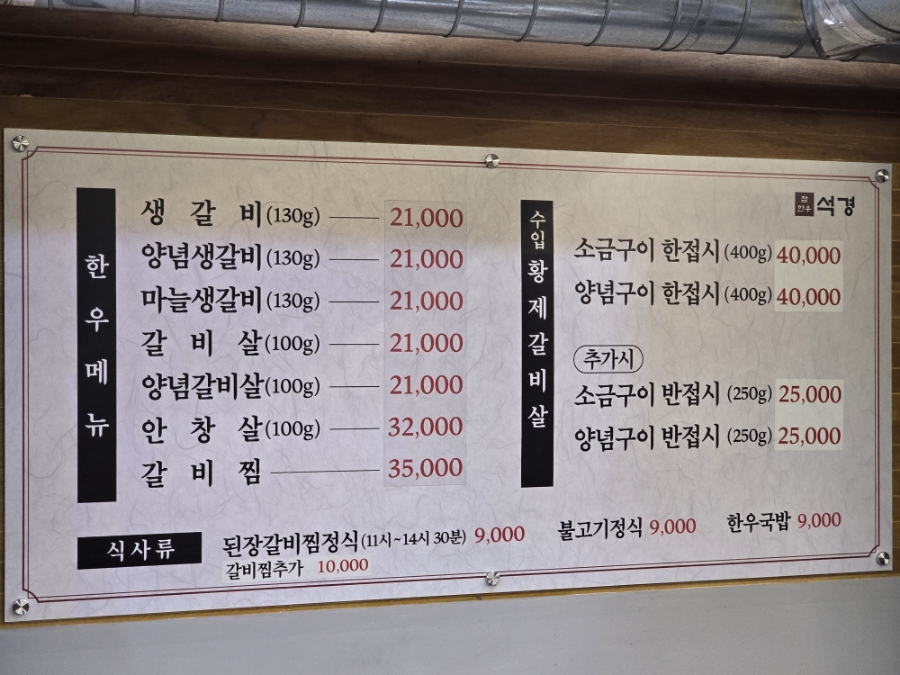 한우메뉴
생갈비(130g) 21,000
양념생갈비(130g) 21,000
마늘생갈비(130g) 21,000
갈비살(100g) 21,000
양념갈비살(100g) 21,000
안창살(100g) 32,000
갈비찜 35,000
수입황제갈비살
석경
소금구이 한접시(400g) 40,000
양념구이 한접시(400g) 40,000
추가시
소금구이 반접시(250g) 25,000
양념구이 반접시(250g) 25,000
식사류
된장갈비찜정식(11시~14시 30분) 9,000
갈비찜추가 10,000
불고기정식 9,000
한우국밥 9,000